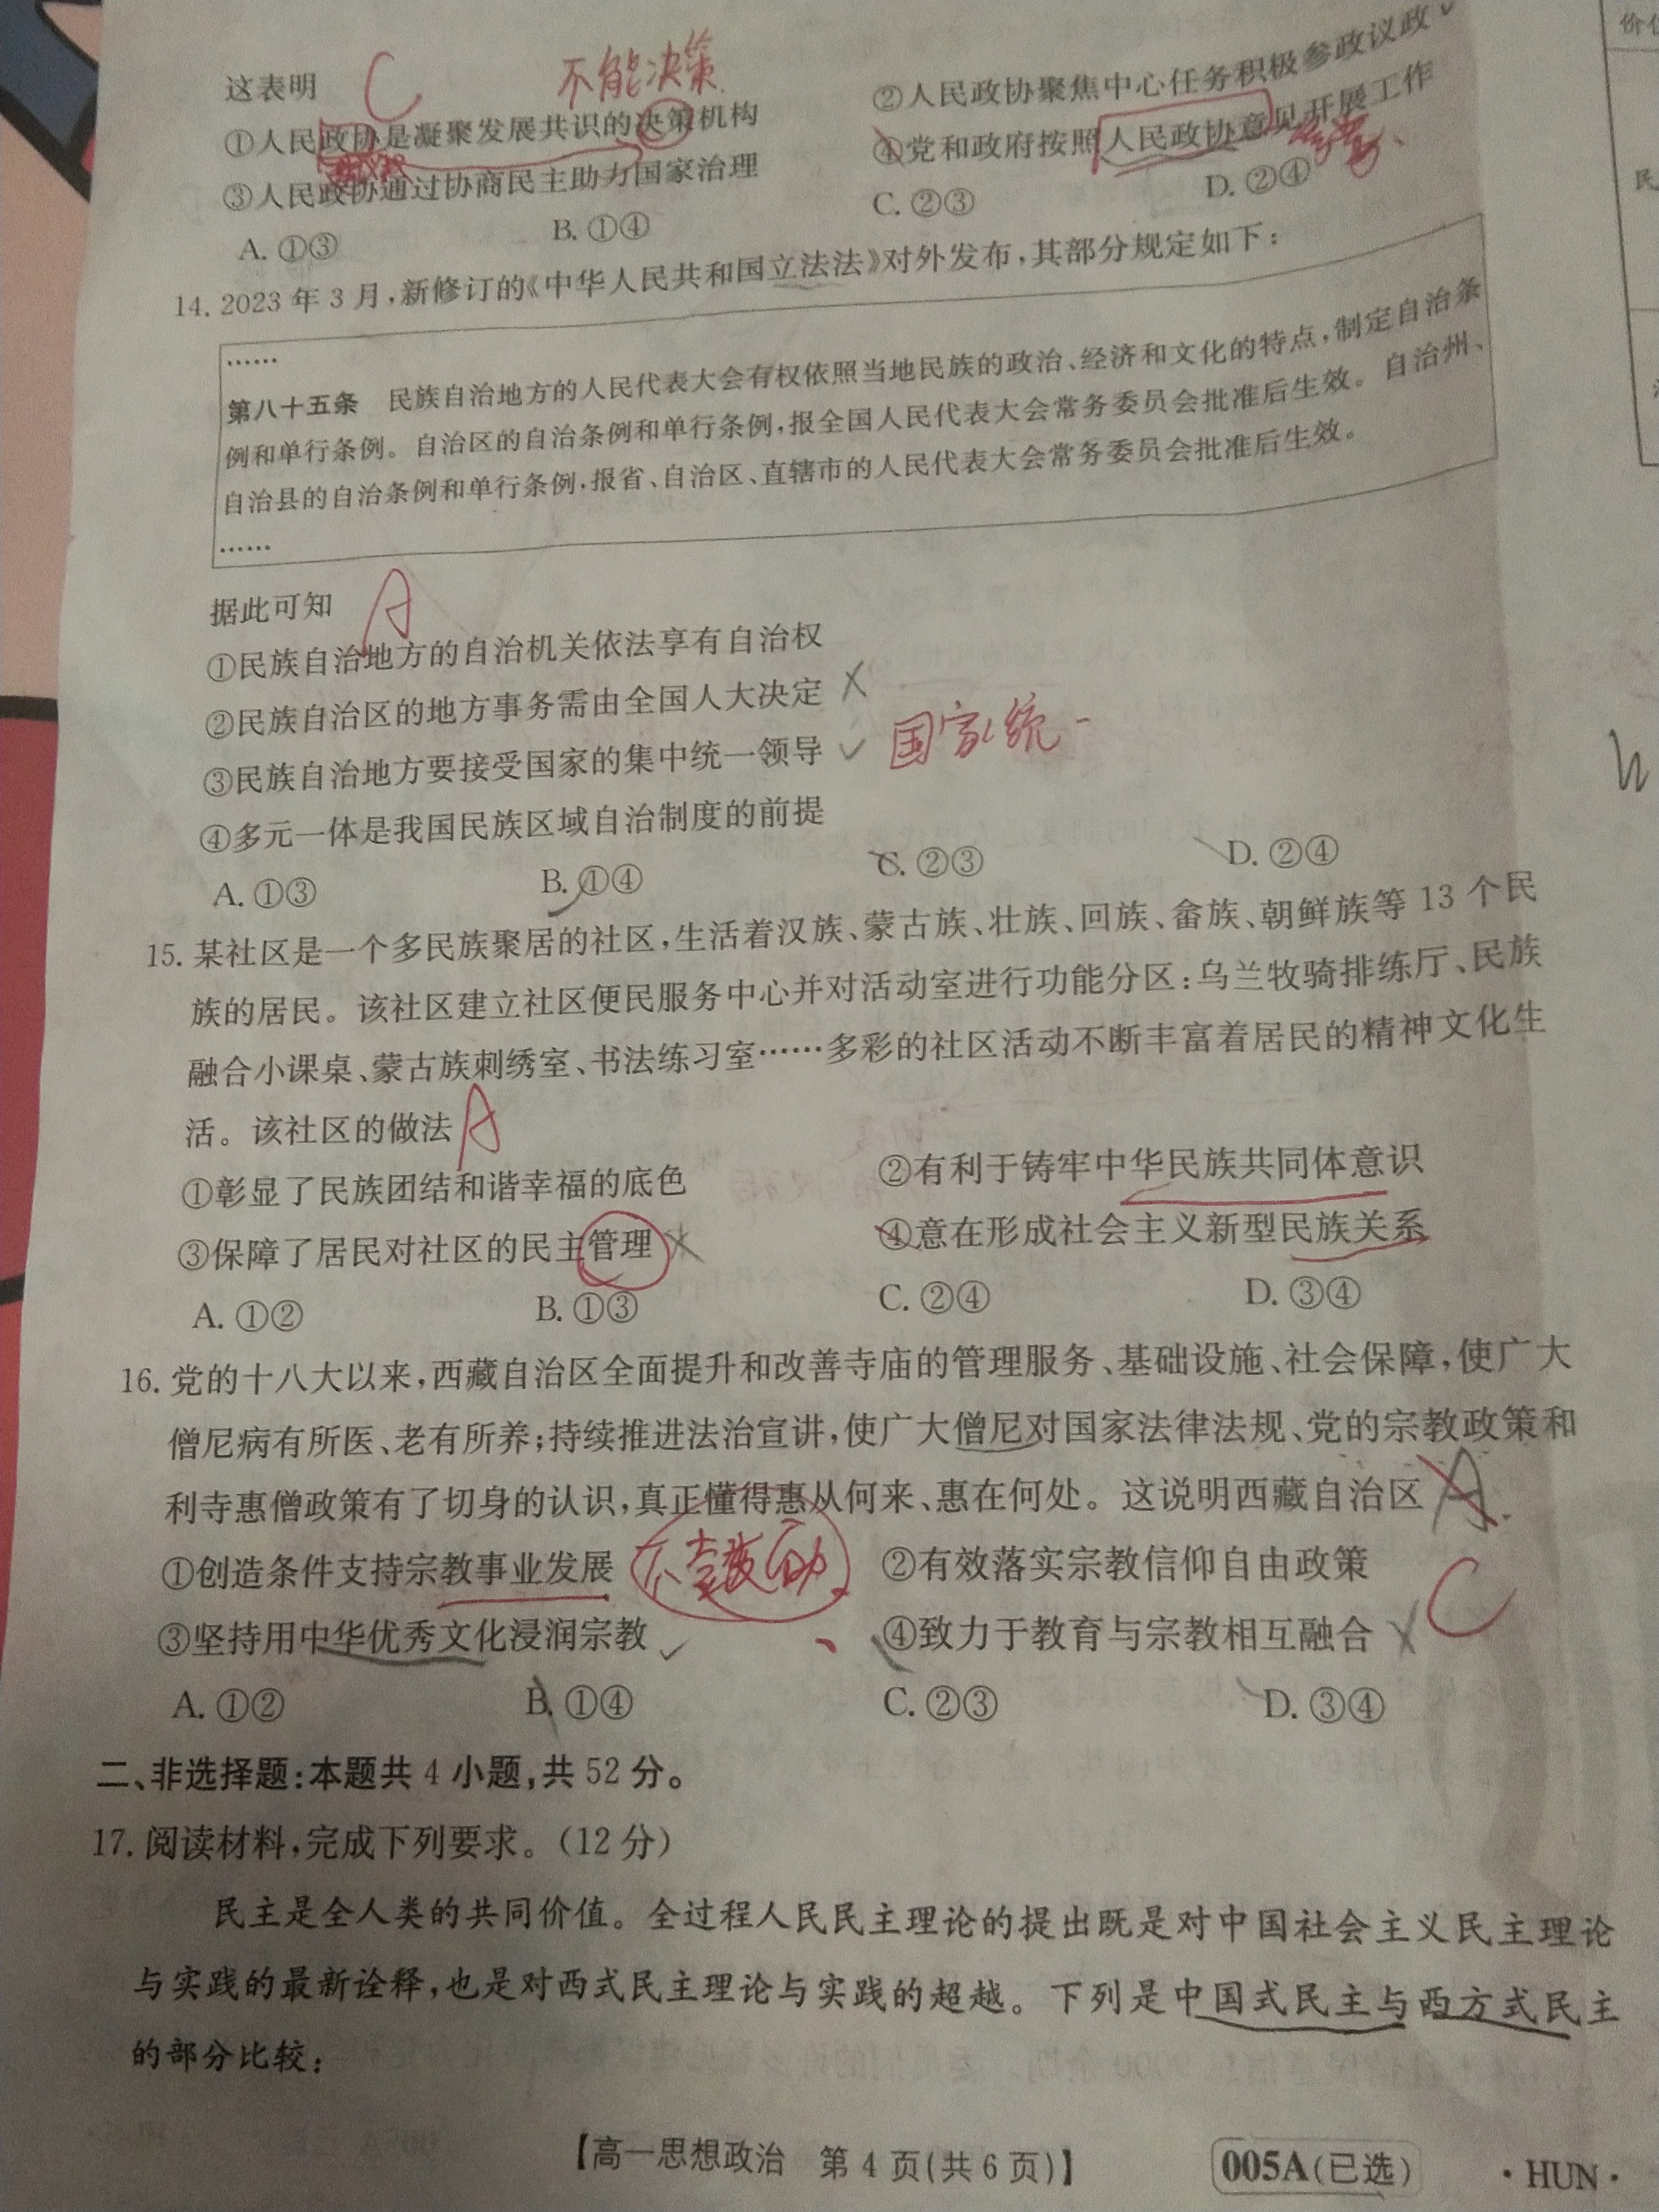 这表明 C 不能决策
①人民政协是凝聚发展共识的决策机构 ②人民政协聚焦中心任务积极参政议政
③人民政协通过协商民主助力国家治理 ④党和政府按照人民政协意见开展工作
A. ①③ B. ①④ C. ②③ D. ②④
14. 2023 年 3 月,新修订的《中华人民共和国立法法》对外发布,其部分规定如下:
……
第八十五条 民族自治地方的人民代表大会有权依照当地民族的政治、经济和文化的特点,制定自治条
例和单行条例。自治区的自治条例和单行条例,报全国人民代表大会常务委员会批准后生效。自治州、
自治县的自治条例和单行条例,报省、自治区、直辖市的人民代表大会常务委员会批准后生效。
……
据此可知 A
①民族自治地方的自治机关依法享有自治权
②民族自治区的地方事务需由全国人大决定
③民族自治地方要接受国家的集中统一领导 国家统一
④多元一体是我国民族区域自治制度的前提
A. ①③ B. ①④ C. ②③ D. ②④
15. 某社区是一个多民族聚居的社区,生活着汉族、蒙古族、壮族、回族、畲族、朝鲜族等 13 个民
族的居民。该社区建立社区便民服务中心并对活动室进行功能分区:乌兰牧骑排练厅、民族
融合小课桌、蒙古族刺绣室、书法练习室……多彩的社区活动不断丰富着居民的精神文化生
活。该社区的做法 A
①彰显了民族团结和谐幸福的底色 ②有利于铸牢中华民族共同体意识
③保障了居民对社区的民主管理 ④意在形成社会主义新型民族关系
A. ①② B. ①③ C. ②④ D. ③④
16. 党的十八大以来,西藏自治区全面提升和改善寺庙的管理服务、基础设施、社会保障,使广大
僧尼病有所医、老有所养;持续推进法治宣讲,使广大僧尼对国家法律法规、党的宗教政策和
利寺惠僧政策有了切身的认识,真正懂得惠从何来、惠在何处。这说明西藏自治区 A
①创造条件支持宗教事业发展 ②有效落实宗教信仰自由政策
③坚持用中华优秀文化浸润宗教 ④致力于教育与宗教相互融合 C
A. ①② B. ①④ C. ②③ D. ③④
二、非选择题:本题共 4 小题,共 52 分。
17. 阅读材料,完成下列要求。(12 分)
民主是全人类的共同价值。全过程人民民主理论的提出既是对中国社会主义民主理论
与实践的最新诠释,也是对西式民主理论与实践的超越。下列是中国式民主与西方式民主
的部分比较:
【高一思想政治 第 4 页(共 6 页)】 005A(已选) ·HUN·